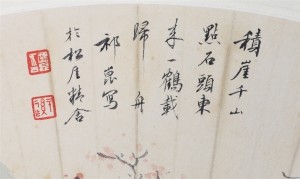 積崖千山
點石頭東
来一鶴載
歸舟
祁崑寫
於松厓精舍